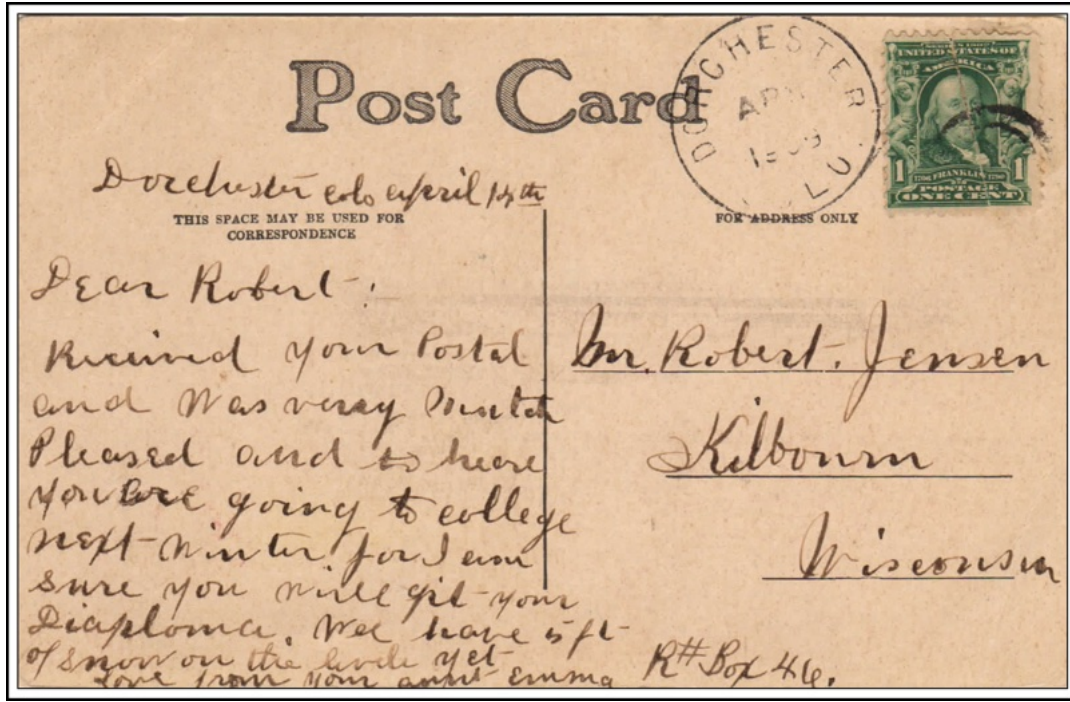 Post Card
DORCHESTER
APR
1909
COLO
UNITED STATES OF
AMERICA
1 1
FRANKLIN
POSTAGE
ONE CENT
Dorchester Colo April 14th
THIS SPACE MAY BE USED FOR
CORRESPONDENCE
FOR ADDRESS ONLY
Dear Robert.
Received your Postal
and was verry mutch
Pleased and to heare
you are going to college
next winter for I am
sure you will git your
Diaploma. Wee have 5 ft
of snow on the levle yet
Love from your aunt Emma
Mr. Robert. Jensen
Kilbourn
Wisconsin
Box 46.